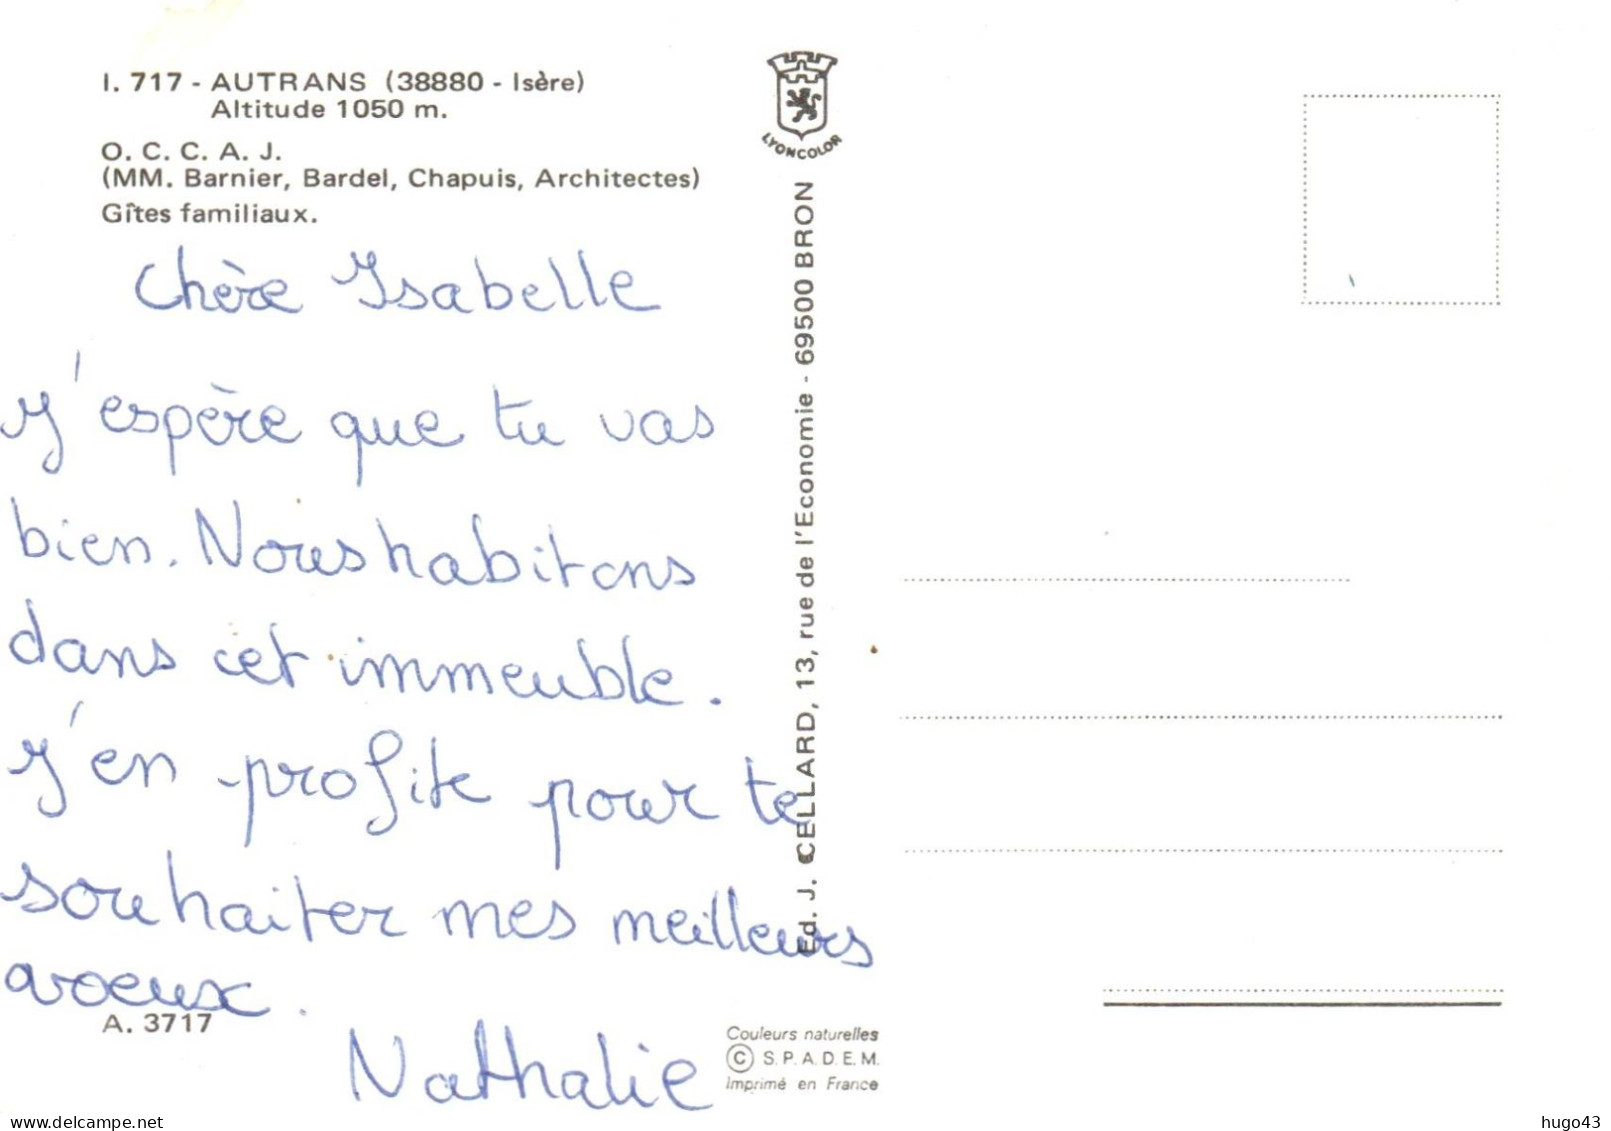 I. 717 - AUTRANS (38880 - Isère)
Altitude 1050 m.
O. C. C. A. J.
(MM. Barnier, Bardel, Chapuis, Architectes)
Gîtes familiaux.
Chère Isabelle
J'espère que tu vas
bien. Nous habitons
dans cet immeuble.
J'en profite pour te
souhaiter mes meilleurs
voeux.
Nathalie
A. 3717
LYONCOLOR
Ed. J. CELLARD, 13, rue de l'Economie - 69500 BRON
Couleurs naturelles
© S.P.A.D.E.M.
Imprimé en France
www.delcampe.net
hugo43